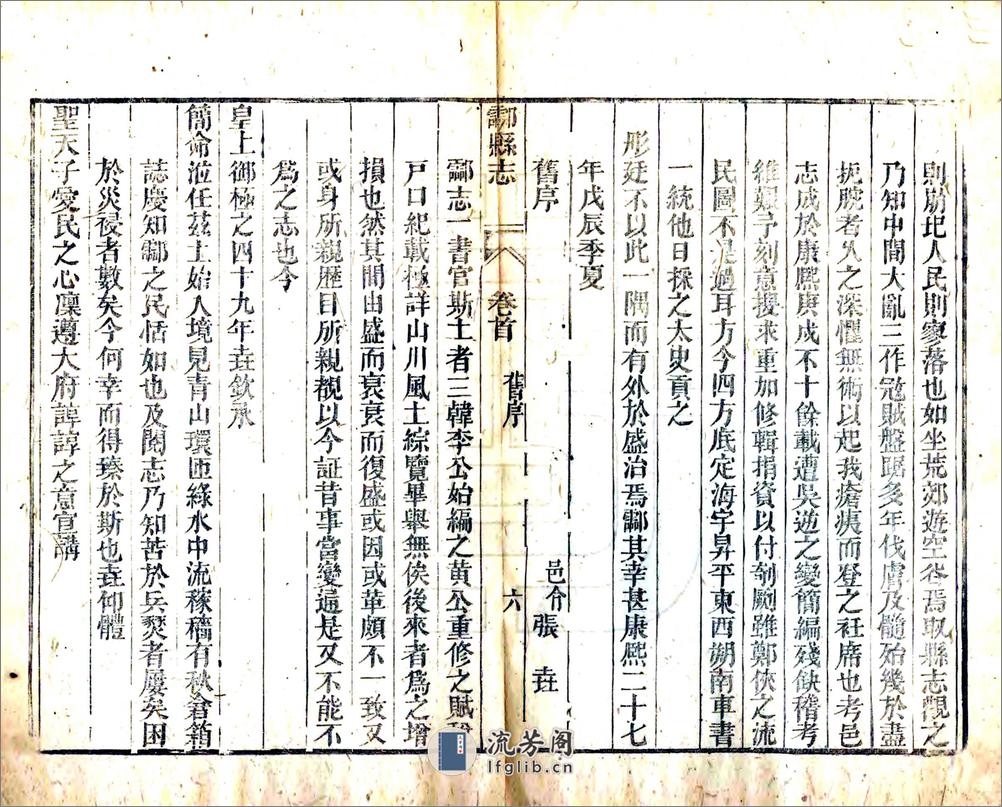 則崩圮人民則寥落也如坐荒郊遊空谷焉取縣志觀之
乃知中間大亂三作冦賊盤踞多年伐膚及髓殆幾於盡
扼腕者久之深懼無術以起我瘡痍而登之衽席也考邑
志成於康熙庚戌不十餘載遭吳逆之變簡編殘缺稽考
維艱予刻意搜求重加修輯捐資以付剞劂雖鄭俠之流
民圖不是過耳方今四方底定海宇昇平東西朔南車書
一統他日採之太史貢之
彤廷不以此一隅而有外於盛治焉酃其幸甚康熙二十七
年戊辰季夏
舊序
邑令張 壵
酃縣志 卷首 舊序 六
酃志一書官斯土者三韓李公始編之黄公重修之賦
戸口紀載極詳山川風土綜覽畢舉無俟後來者爲之增
損也然其間由盛而衰衰而復盛或因或革頗不一致又
或身所親歷目所親覩以今証昔事當變通是又不能不
爲之志也今
皇上御極之四十九年壵欽承
簡命涖任茲土始入境見青山環匝綠水中流稼穡有秋倉箱
誌慶知酃之民恬如也及閱志乃知苦於兵燹者屢矣困
於災祲者數矣今何幸而得臻於斯也壵仰體
聖天子愛民之心凛遵大府諄諄之意宣講
流芳阁
lfglib.cn